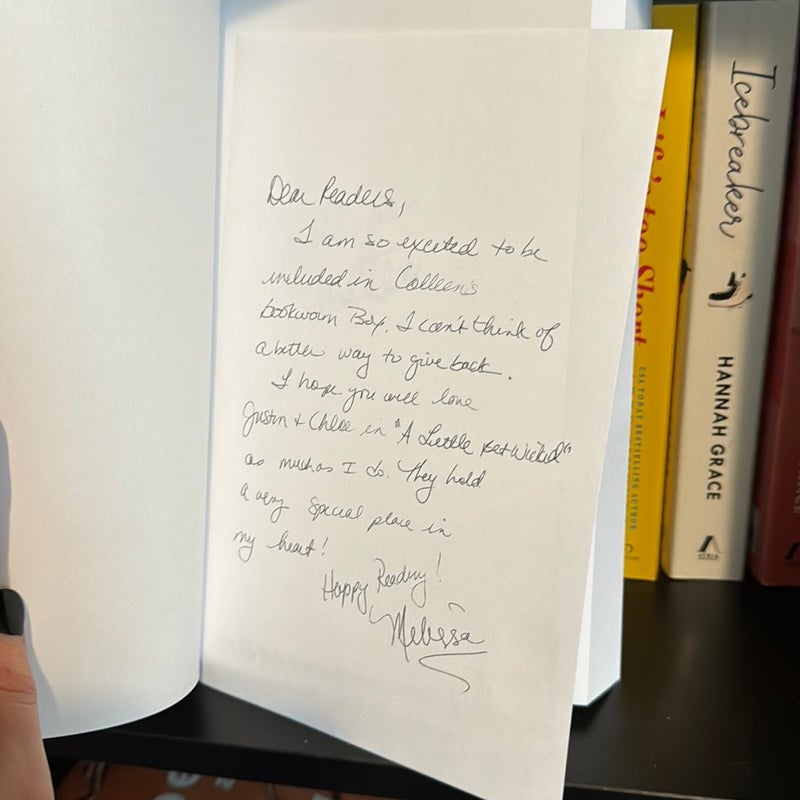 Dear Readers,
I am so excited to be
included in Colleen's
bookworm Box. I can't think of
a better way to give back.
I hope you will love
Justin + Chloe in "A Little Bet Wicked"
as much as I do. They hold
a very special place in
my heart!
Happy Reading!
Melissa
Life's too Short
USA TODAY BESTSELLING AUTHOR
Icebreaker
HANNAH GRACE